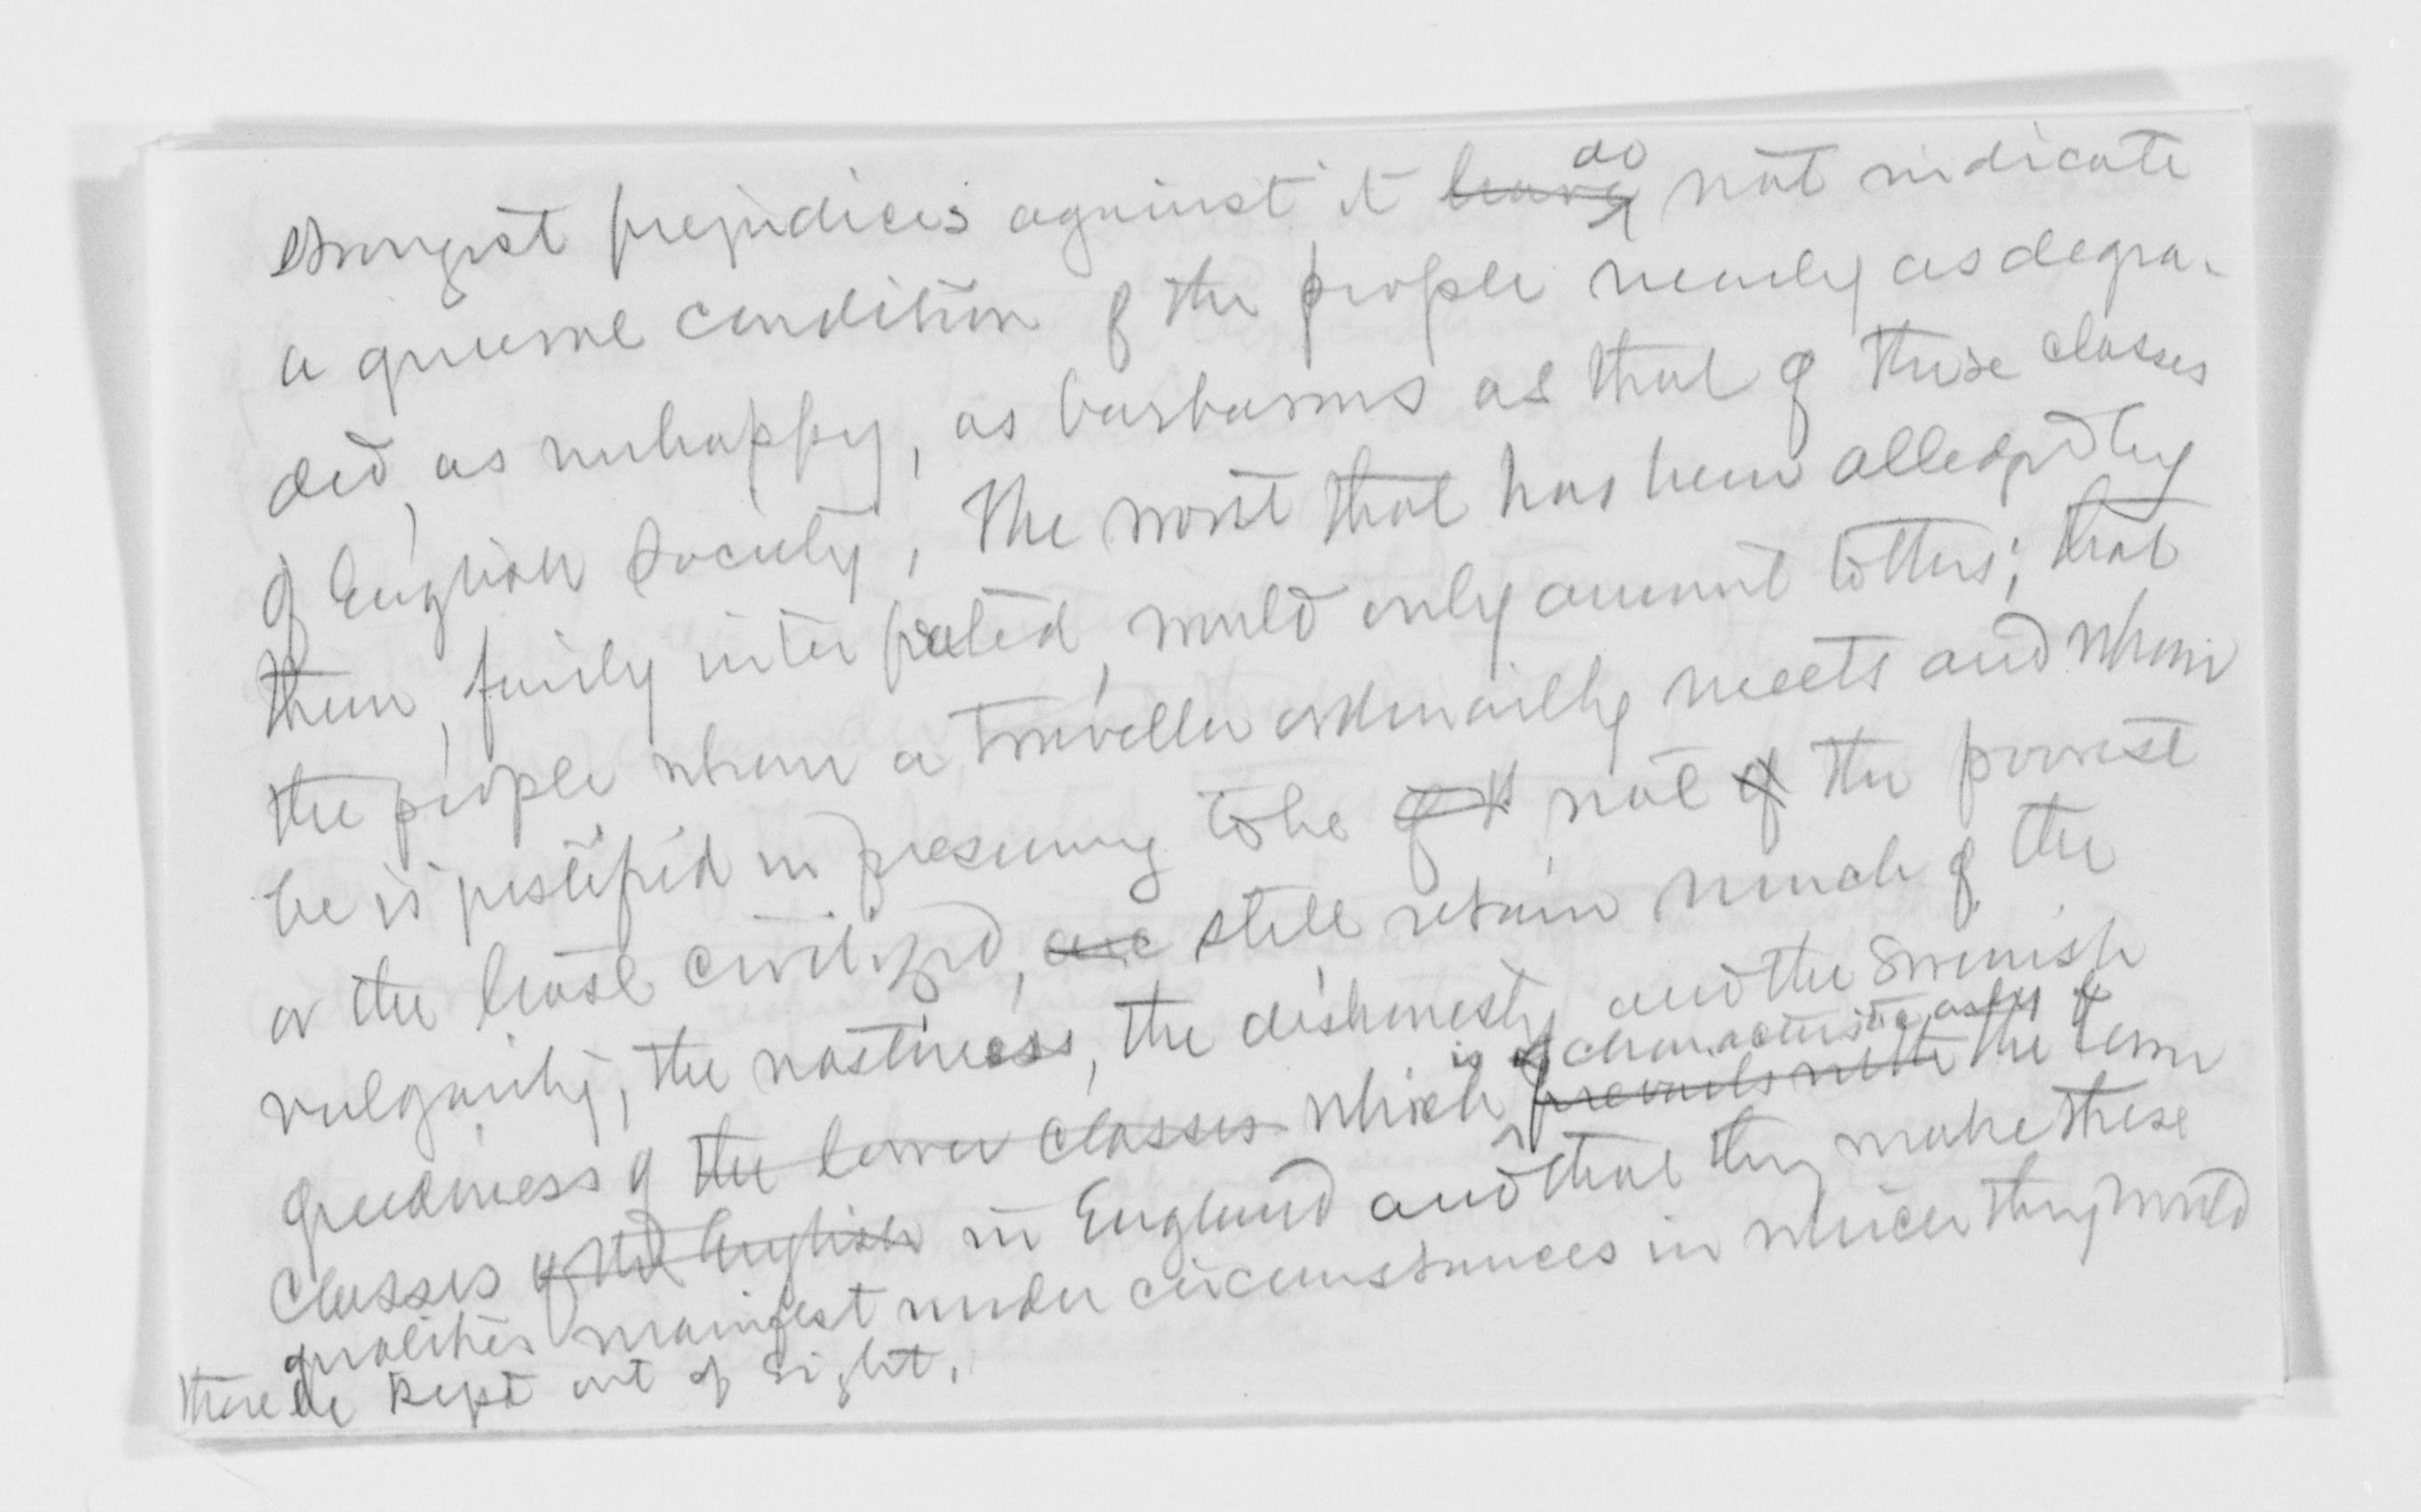 strongest prejudices against it have do not indicate
a general condition of the people nearly as degra-
ded, as unhappy, as barbarous as that of these classes
of English Society, The worst that has been alledged by
them, fairly interpreted, would only amount to this; that
the people whom a traveller ordinarily meets and whom
he is justified in presuming to be of th not of the poorest
or the least civilized, are still retain much of the
vulgarity, the nastiness, the dishonesty and the swinish
is characteristic of
greediness of the lower classes which prevails with the low
classes of the English in England and that they make these
qualities manifest under circumstances in which they would
there be kept out of sight.